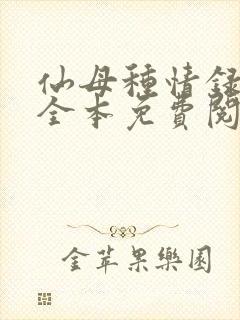 仙母種情録
全本免費閱
金苹果樂園